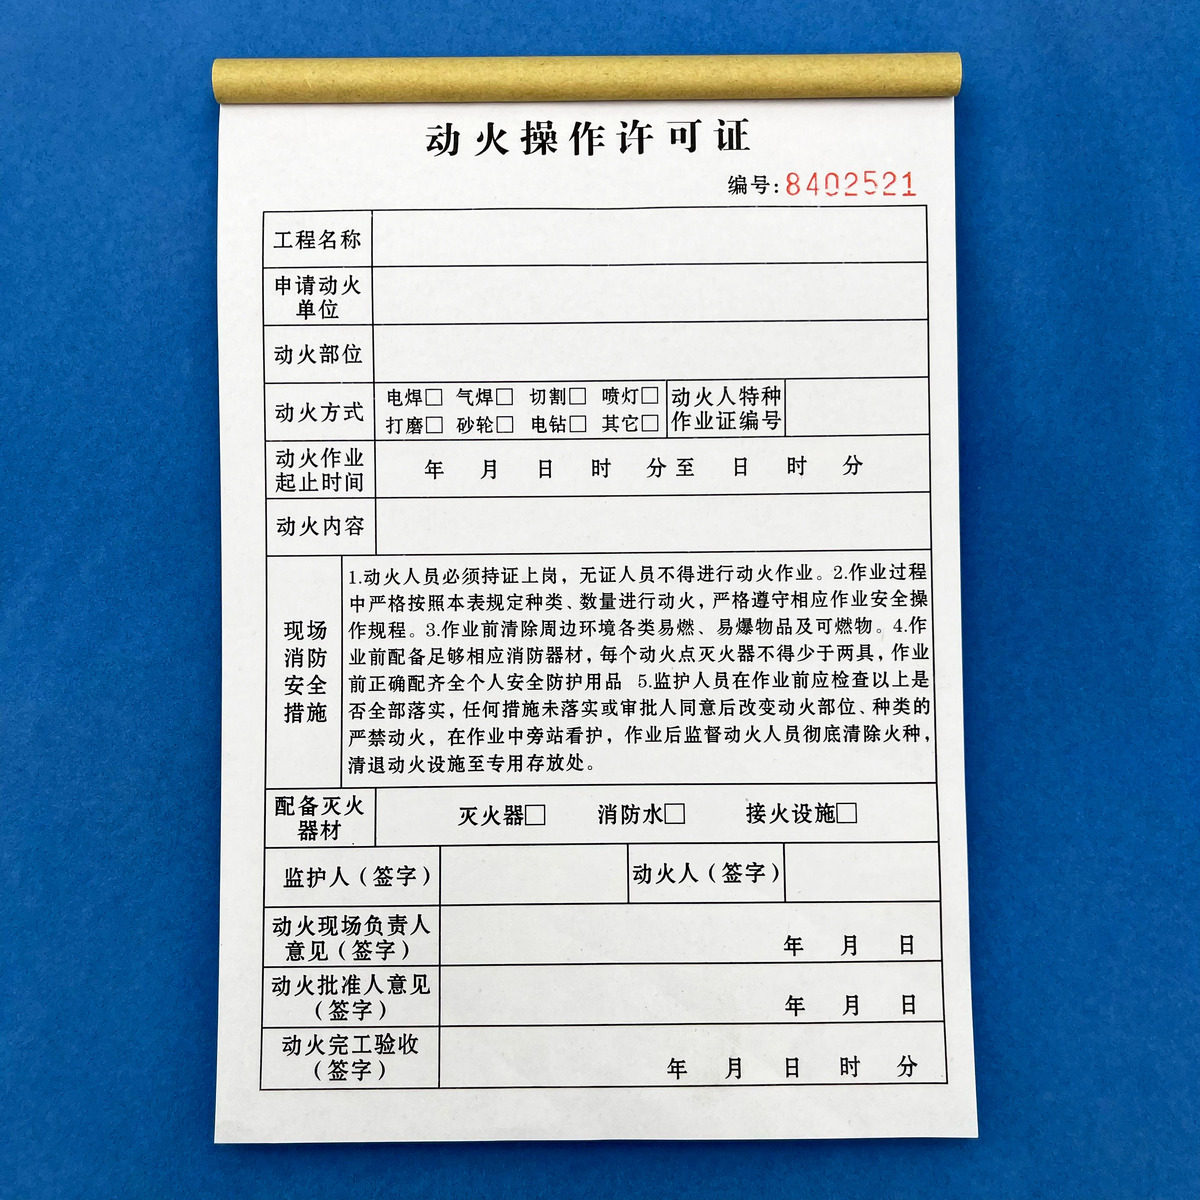 动火操作许可证
编号:8402521
工程名称
申请动火
单位
动火部位
动火方式
电焊□ 气焊□ 切割□ 喷灯□
打磨□ 砂轮□ 电钻□ 其它□
动火人特种
作业证编号
动火作业
起止时间
年 月 日 时 分至 日 时 分
动火内容
现场
消防
安全
措施
1.动火人员必须持证上岗，无证人员不得进行动火作业。2.作业过程
中严格按照本表规定种类、数量进行动火，严格遵守相应作业安全操
作规程。3.作业前清除周边环境各类易燃、易爆物品及可燃物。4.作
业前配备足够相应消防器材，每个动火点灭火器不得少于两具，作业
前正确配齐全个人安全防护用品 5.监护人员在作业前应检查以上是
否全部落实，任何措施未落实或审批人同意后改变动火部位、种类的
严禁动火，在作业中旁站看护，作业后监督动火人员彻底清除火种，
清退动火设施至专用存放处。
配备灭火
器材
灭火器□ 消防水□ 接火设施□
监护人（签字）
动火人（签字）
动火现场负责人
意见（签字）
年 月 日
动火批准人意见
（签字）
年 月 日
动火完工验收
（签字）
年 月 日 时 分